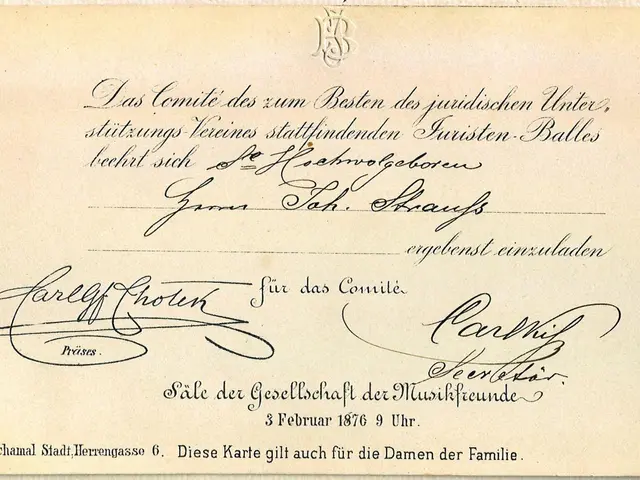 JB
Das Comité des zum Besten des juridischen Unter,
stützungs-Vereines stattfindenden Juristen-Balles
beehrt sich Se Hochwolgeboren
Herrn Joh. Strauss
ergebenst einzuladen
für das Comité
Carl Gf Chotek
Präses.
Carl
Secretär.
Säle der Gesellschaft der Musikfreunde
3 Februar 1876 9 Uhr.
chamal Stadt, Herrengasse 6. Diese Karte gilt auch für die Damen der Familie.